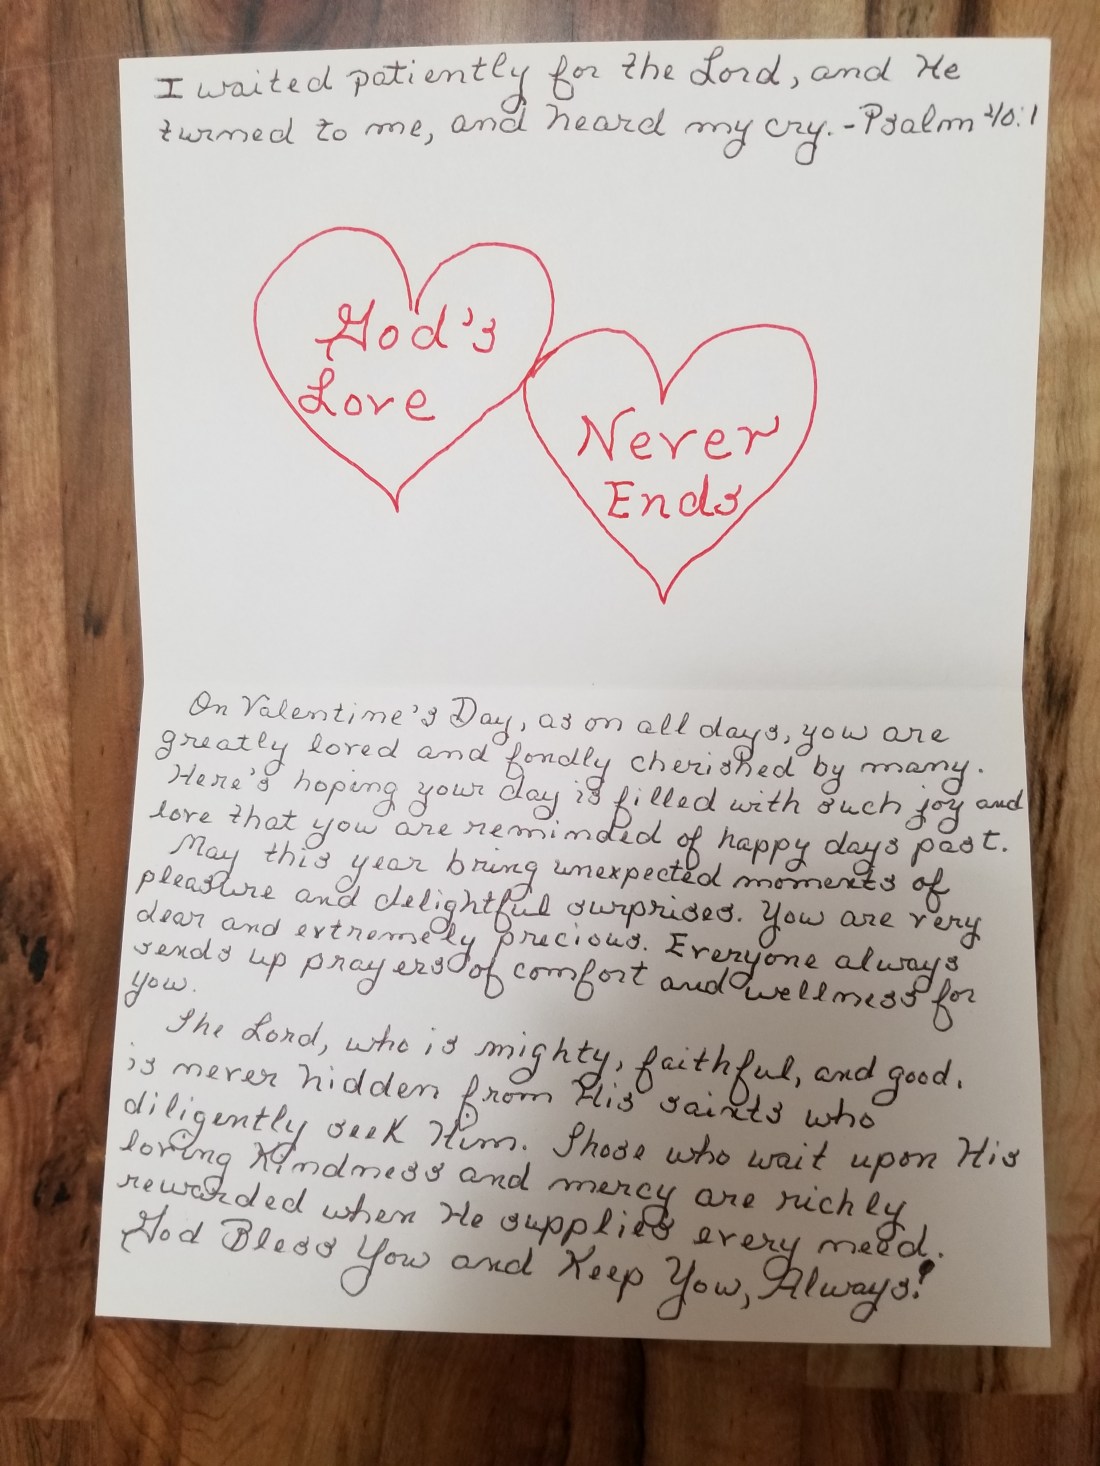 I waited patiently for the Lord, and He
turned to me, and heard my cry. - Psalm 40:1
God's
Love
Never
Ends
On Valentine's Day, as on all days, you are
greatly loved and fondly cherished by many.
Here's hoping your day is filled with such joy and
love that you are reminded of happy days past.
May this year bring unexpected moments of
pleasure and delightful surprises. You are very
dear and extremely precious. Everyone always
sends up prayers of comfort and wellness for
you.
The Lord, who is mighty, faithful, and good,
is never hidden from His saints who
diligently seek Him. Those who wait upon His
loving Kindness and mercy are richly
rewarded when He supplies every need.
God Bless You and Keep You, Always!